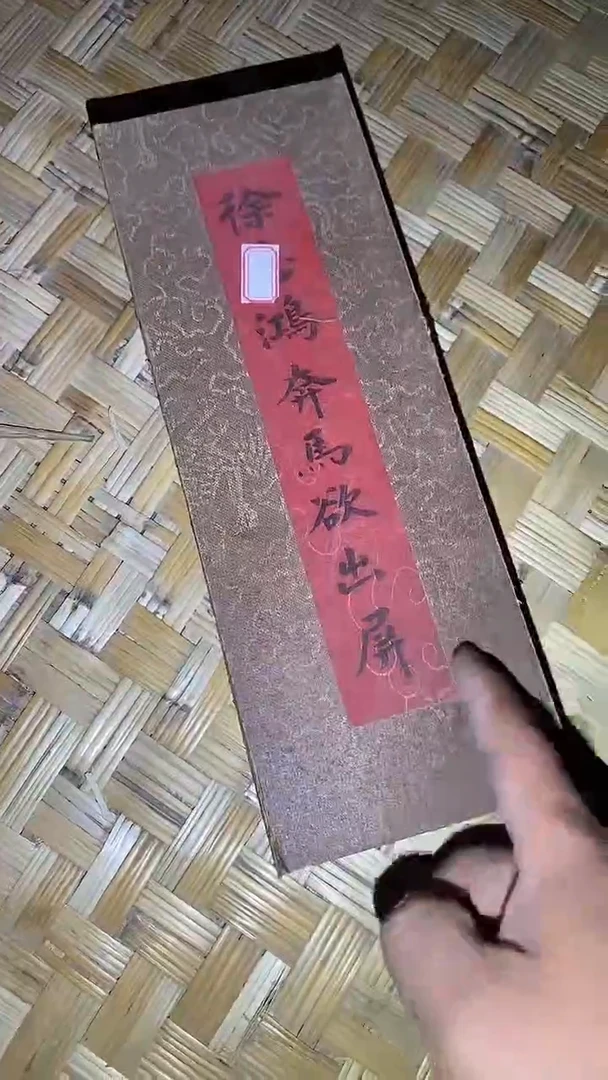 徐鴻奔馬欲出屏